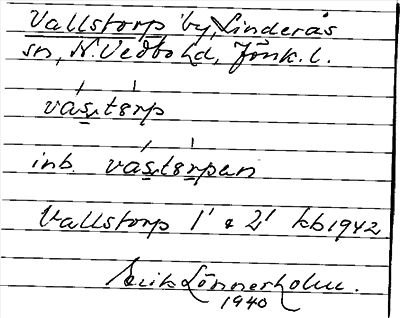 Vallstorp by, Linderås
sn, N. Vedbo hd, Jönk. l.
va̍s̱tơ̍rp
inb. va̍s̱tơ̍rpan
Vallstorp 1' & 2' kb 1942
Erik Lönnerholm.
1940